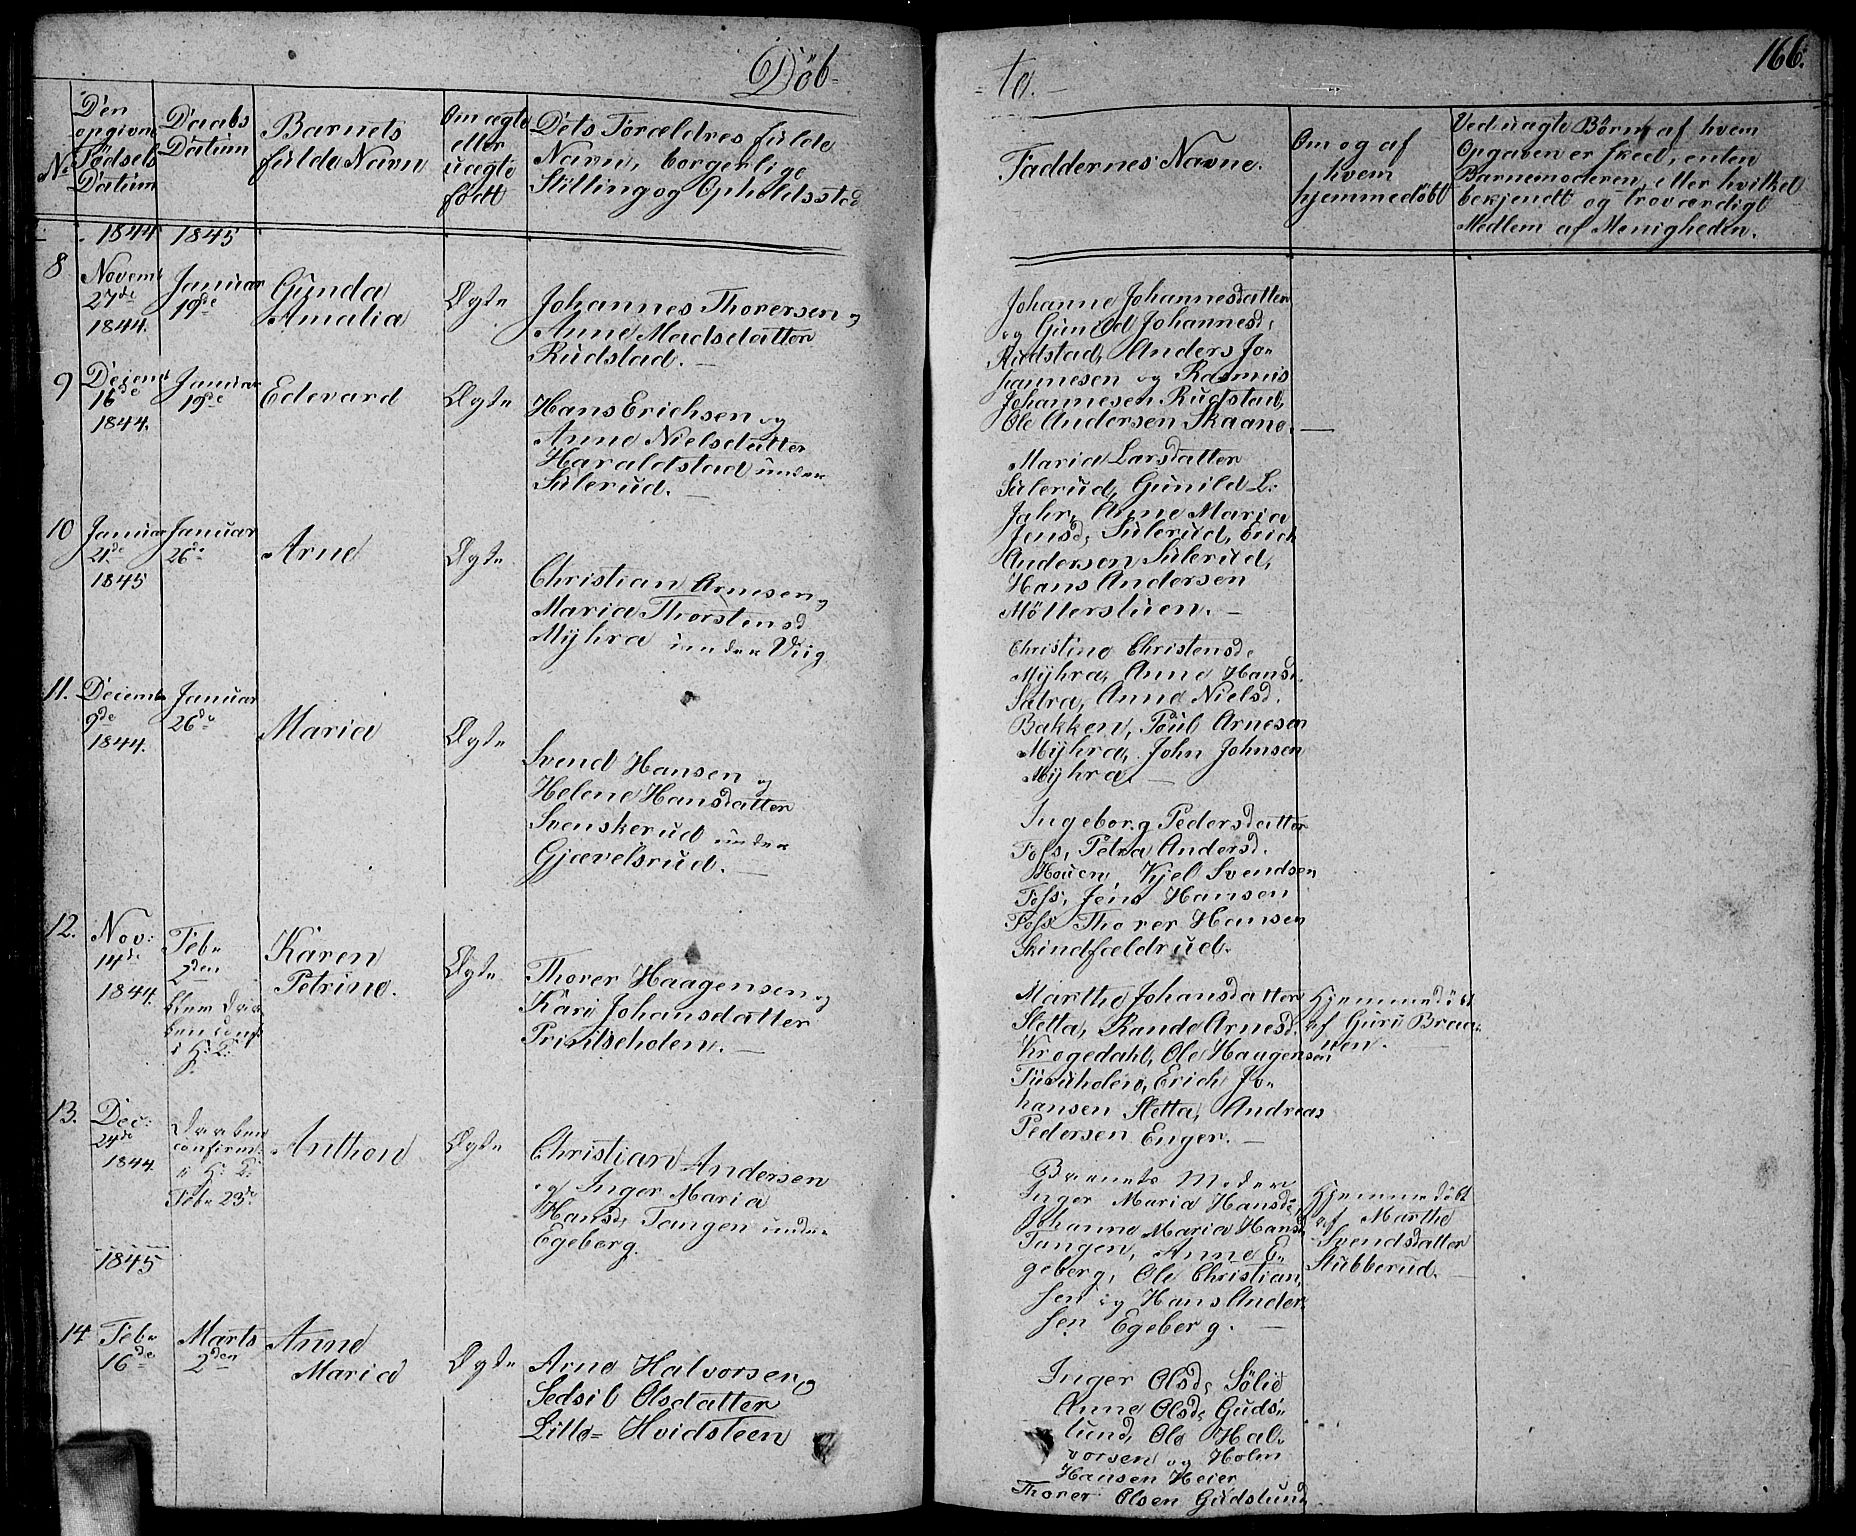 Döb-
No
Den
opgivne
Fødsels
Datum
Daabs
Datum
Barnets
fulde Navn
Om ægte
eller
uægte
født
Dets Forældres fulde
Navn, borgerlige
Stilling og Opholdssted
1844 1845
8
Novemb
27de
1844.
Januar
19de
Gunda
Amalia
Ægte
Johannes Thorersen og
Anne Madsdatter
Rudstad. —
9
Decemb
16de
1844.
Januar
19de
Edevard
Ægte
Hans Erichsen og
Anne Nielsdatter
Haraldstad under
Sulerud. —
10
Januar
21de
1845
Januar
26de
Arne
Ægte
Christian Arnesen og
Maria Thorstensd
Myhra under Viig
11.
Decemb
9de
1844.
Januar
26de
Maria
Ægte
Svend Hansen og
Helene Hansdatter
Svenskerud under
Gjævelsrud. —
12.
Nov:
14de
1844.
Febr
2den
blev Daa-
ben conf:
i H: K:
Karen
Petrine.
Ægte
Thorer Haagensen og
Kari Johansdatter
Printseholem. —
13.
Dec:
24de
1844.
Daaben
confirm:
i H: K:
Febr 23de
Anthon
Ægte
Christian Andersen
og Inger Maria
Hansd. Tangen under
Egeberg.
1845
14
Febr
16de
Marts
2den
Anne
Maria
Ægte
Arne Halvorsen og
Sedsil Olsdatter
Lille= Hvidsteen
-te. —
166.
Faddernes Navne.
Om og af
hvem
hjemmedøbt
Ved uægte Børn af hvem
Opgaven er skeed, enten
Barnemoderen, eller hvilket
bekjendt og troværdigt
Medlem af Menigheden.
Johanne Johannesdatter
og Gunild Johannesd.
Rudstad, Anders Jo-
hannesen og Rasmus
Johannesen Rudstad,
Ole Andersen Skaane. —
Maria Larsdatter
Sulerud, Gunild L:
Jahr, Anne Maria
Jensd. Sulerud, Erich
Andersen Sulerud,
Hans Andersen
Møllerstuen. —
Christine Christensd.
Myhra, Anne Hansd.
Sætra, Anne Nielsd.
Bakken, Poul Arnesen
Myhra, John Johnsen
Myhra. —
Ingeborg Pedersdatter
Foss, Petra Andersd.
Houen Kjel Svendsen
Foss, Jens Hansen
Foss Thorer Hansen
Skindfældrud.
Marthe Johansdatter
Sletta, Rande Arnesd.
Krogedahl, Ole Haagensen
Furuholen, Erich Jo-
hansen Sletta, Andreas
Pedersen Enger. —
Hjemmedöbt
af Guri Braa-
nen.
Barnets Moder
Inger Maria Hansd.
Johanne Maria Hansd
Tangen, Anne E-
geberg, Ole Christian-
sen og Hans Ander-
sen Egeberg. —
Hjemmedöbt
af Marthe
Svendsdatter
Stubberud. —
Inger Olsd. Sölie
Anne Olsd. Guds-
lund, Ole Hal-
vorsen og Holm
Hansen Heier
Thorer Olsen Gudslund